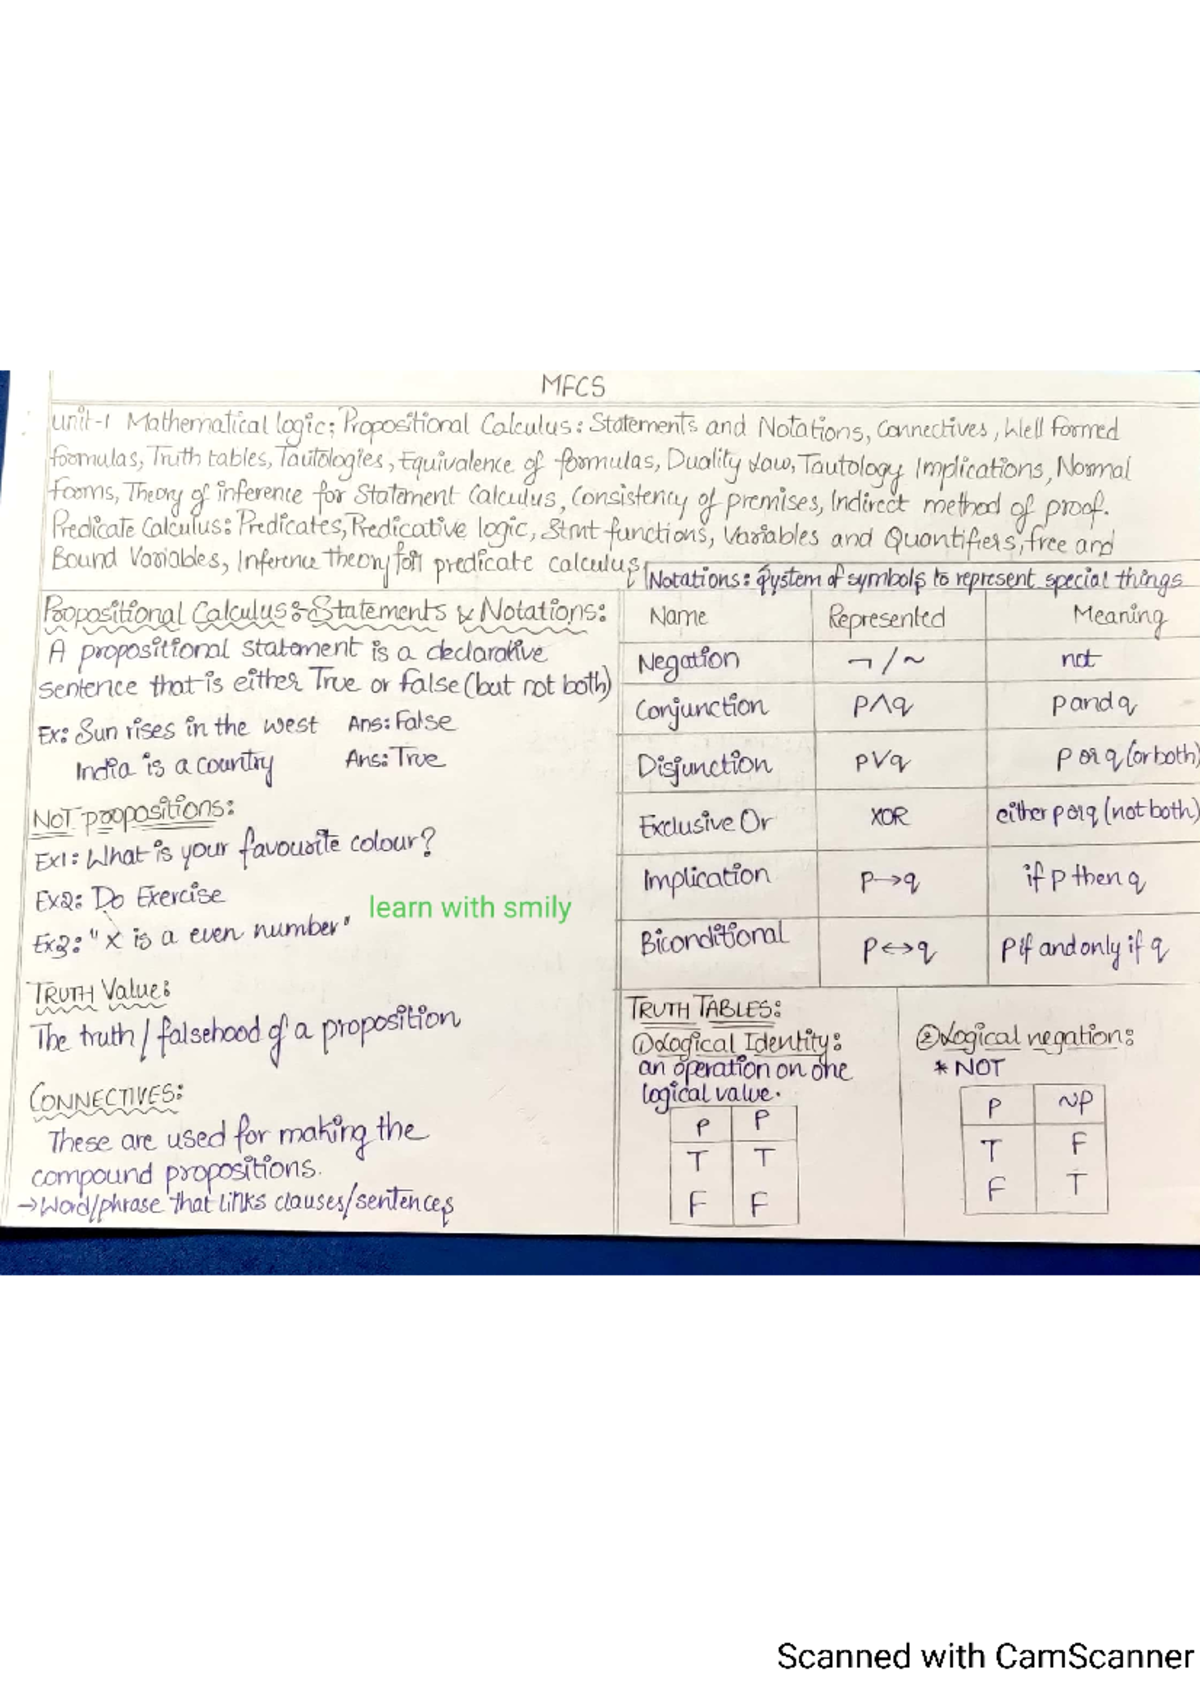 MFCS
unit-1 Mathematical logic: Propositional Calculus: Statements and Notations, Connectives, Well formed
formulas, Truth tables, Tautologies, Equivalence of formulas, Duality Law, Tautology Implications, Normal
forms, Theory of inference for Statement Calculus, Consistency of premises, Indirect method of proof.
Predicate Calculus: Predicates, Predicative logic, Stmt functions, Variables and Quantifiers, free and
Bound Variables, Inference theory for predicate calculus.
Notations: System of symbols to represent special things
Propositional Calculus:-Statements & Notations:
A propositional statement is a declarative
sentence that is either True or false (but not both)
Ex: Sun rises in the west Ans: False
India is a country Ans: True
NOT propositions:
Ex1: What is your favourite colour?
Ex2: Do Exercise
Ex3: "X is a even number"
learn with smily
TRUTH Value:
The truth / falsehood of a proposition
CONNECTIVES:
These are used for making the
compound propositions.
→Word/phrase that links clauses/sentences
Name Represented Meaning
Negation ¬ / ~ not
Conjunction P∧q p and q
Disjunction p∨q p or q (or both)
Exclusive Or XOR either p or q (not both)
Implication P→q if p then q
Biconditional P↔q P if and only if q
TRUTH TABLES:
① Logical Identity:
an operation on one
logical value.
P P
T T
F F
② Logical negation:
* NOT
P ~P
T F
F T
Scanned with CamScanner